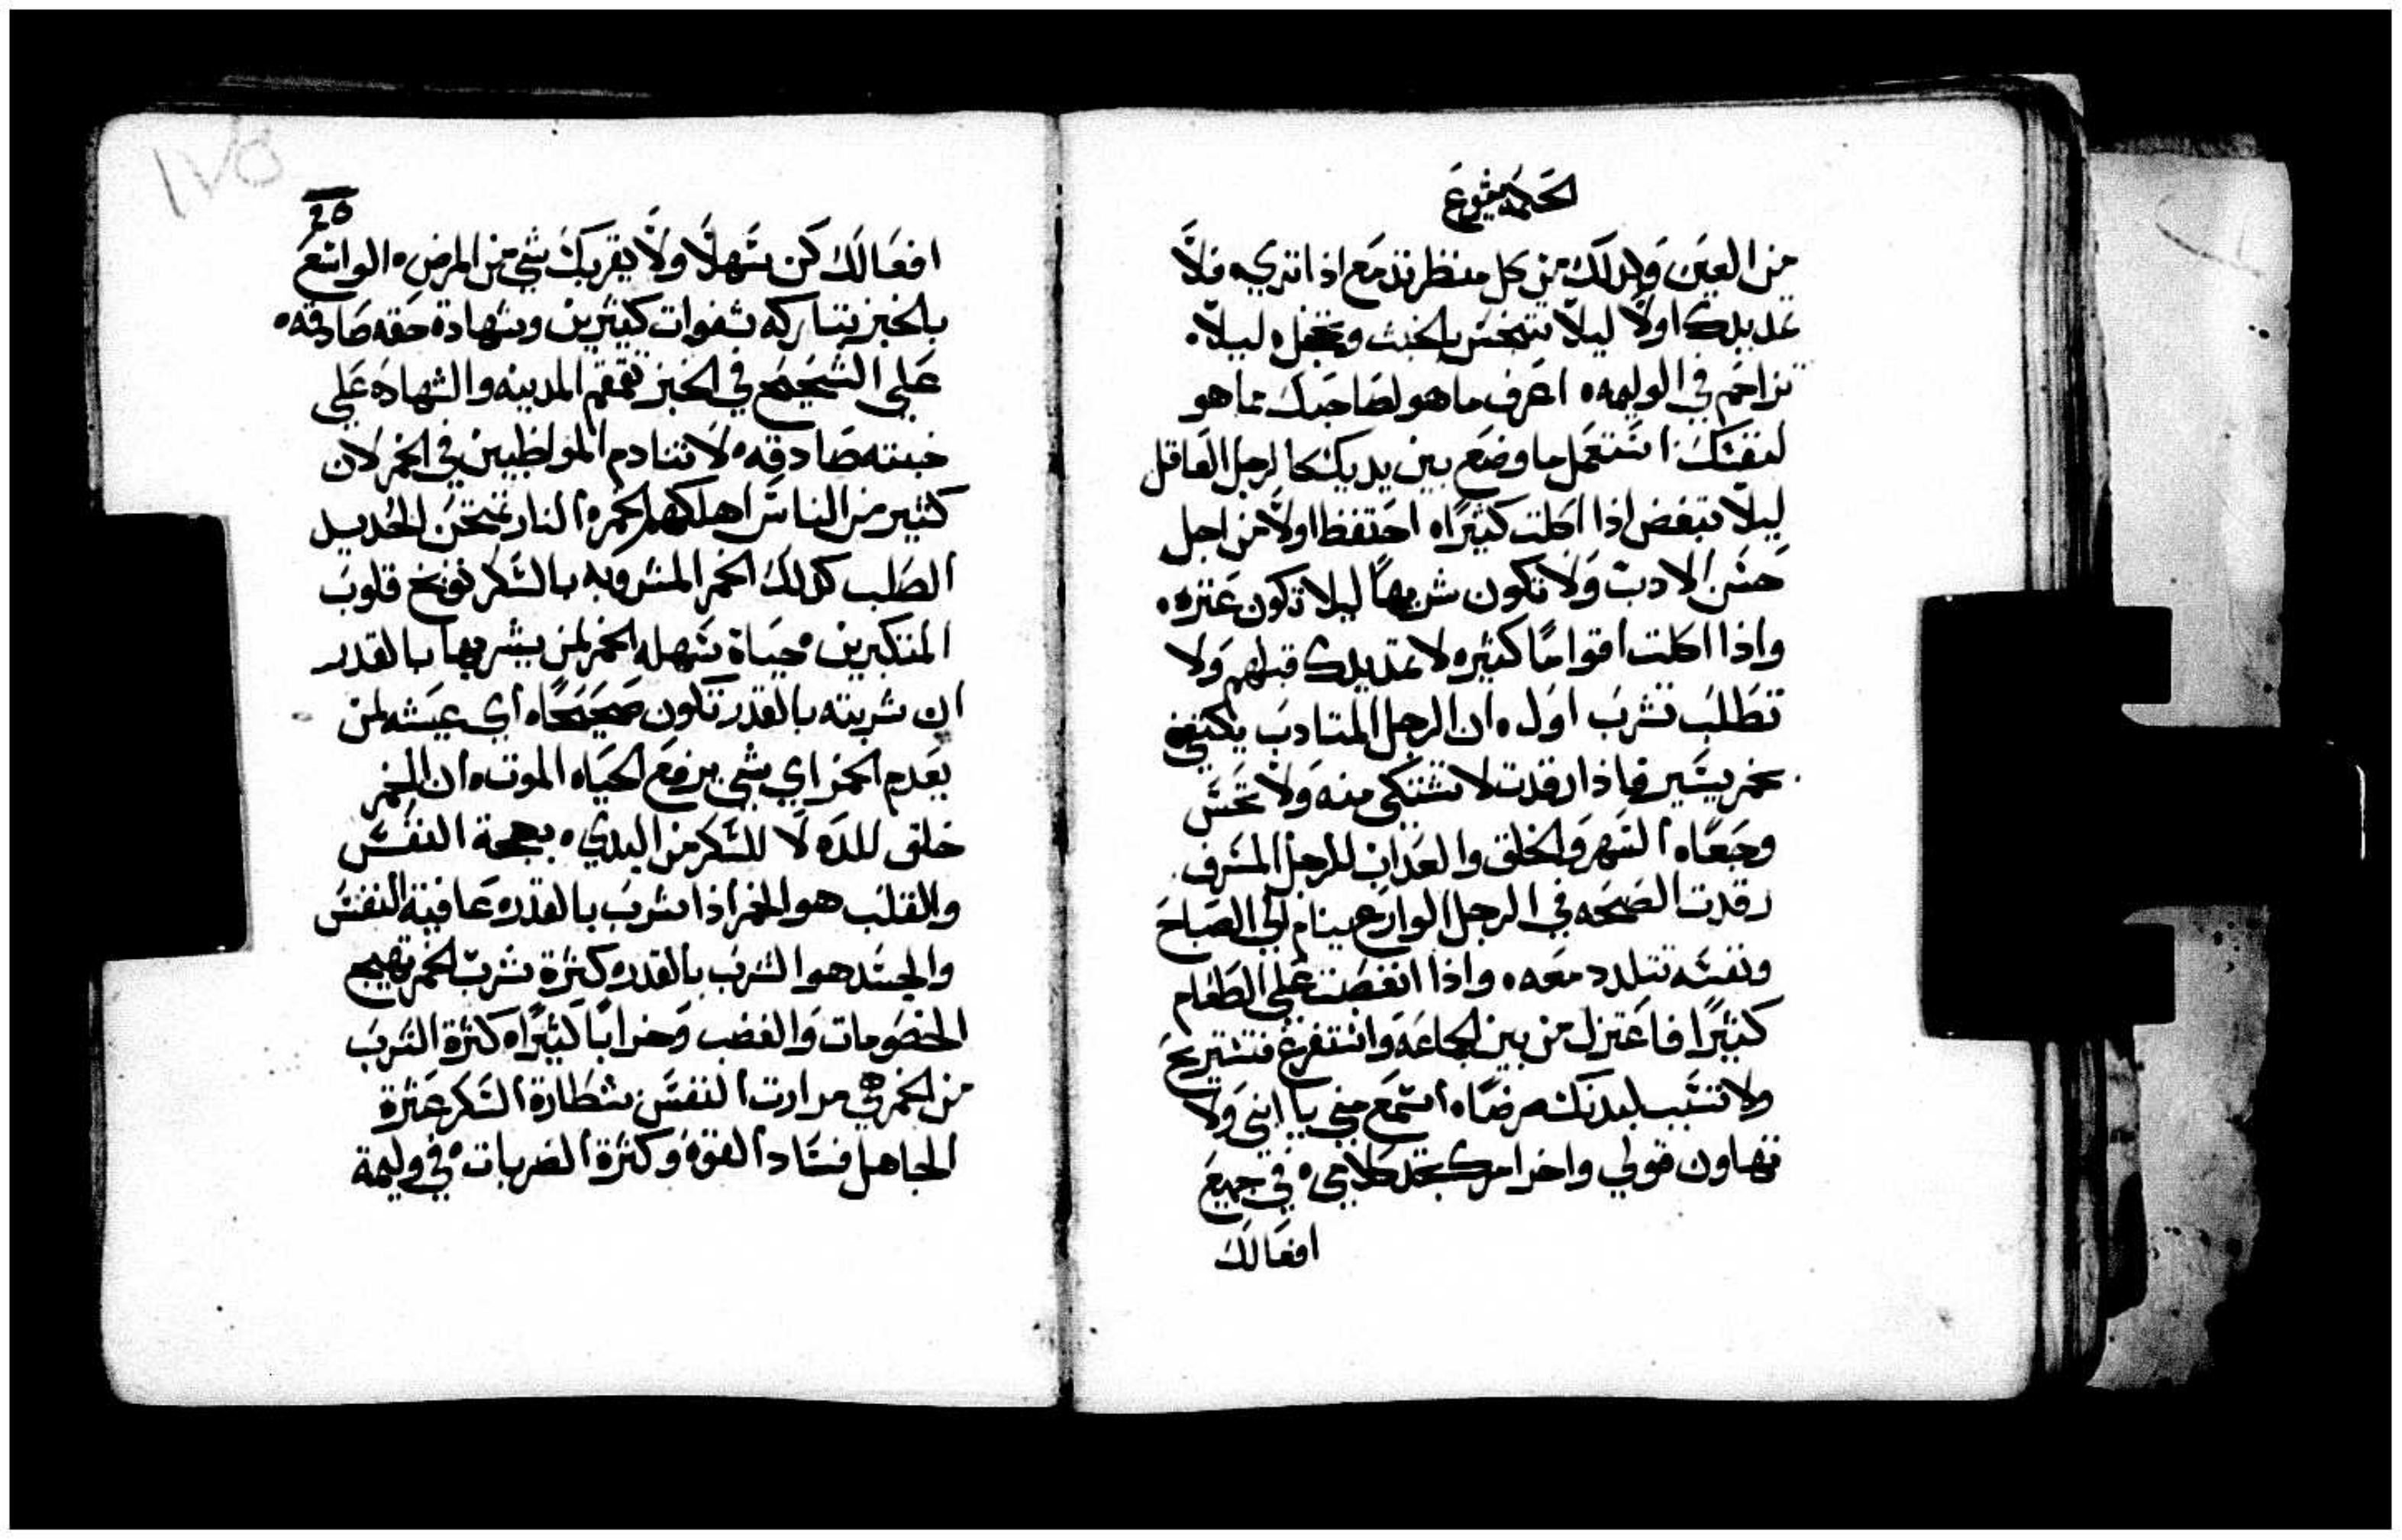 الحكمة يشوع
من العين ولذلك من كل منظر تدمع اذا تري ه فلا
تمد يدك اولا ليلا تتنجس بالخبث وتخجل ه ليلا
تزاحم في الوليمه ه اعرف ما هو لصاحبك مما هو
لنفسك استعمل ما وضع بين يديك كالرجل العاقل
ليلا تبغض اذا اكلت كثيرًا ه احتفظ اولا من اجل
حسن الادب ولا تكون شرهًا ليلا تكون عثره ه
واذا اكلت اقوامًا كثيره لا تمتد يدك قبلهم ولا
تطلب تشرب اول ه ان الرجل المتادب يكتفي
بخمر يسير فاذا رقدت لا تشتكي منه ولا تحس
وجعًا ه السهر والخلق والعذاب للرجل المسرف
رقدت الصحه في الرجل الوارع ينام الي الصباح
ونفسه تتلدد معه ه واذا انغصبت علي الطعام
كثيرًا فاعتزل من بين الجماعه واستفرغ فتستريح
ولا تسبب لبدنك مرضًا ه اسمع مني يا ابني ولا
تتهاون قولي واخر امرك تجد كلامي ه في جميع
افعالك
1٧٥
20
افعالك كن سهلًا ولا يقربك شي من المرض ه الواسع
بالخبز تتباركه شفوات كثيرين وشهادة حقه صادقه ه
علي الشحيح في الخبز تقمقم المدينه والشهاده علي
خبثته صادقه ه لا تنادم المواظبين في الخمر لان
كثير من الناس اهلكهم الخمر ه النار تمتحن الحديد
الصلب كذلك الخمر المشروبه بالسكر توبخ قلوب
المتكبرين ه حياة سهله الخمر لمن يشربها بالقدر
ان شربته بالقدر تكون صحيحًا ه اي عيشه لمن
يعدم الخمر اي شي يرفع الحياه الموت ه ان الخمر
خلق للده لا للسكر من البدي ه بهجة النفس
والقلب هو الخمر اذا شرب بالقدر ه عافية النفس
والجسد هو الشرب بالقدر ه كثرة شرب الخمر تهيج
الخصومات والغضب وخرابًا كثيرًا ه كثرة الشرب
من الخمر هي مرارت النفس شطارة السكر عثرة
الجاهل فساد القوه وكثرة الضربات ه في وليمة